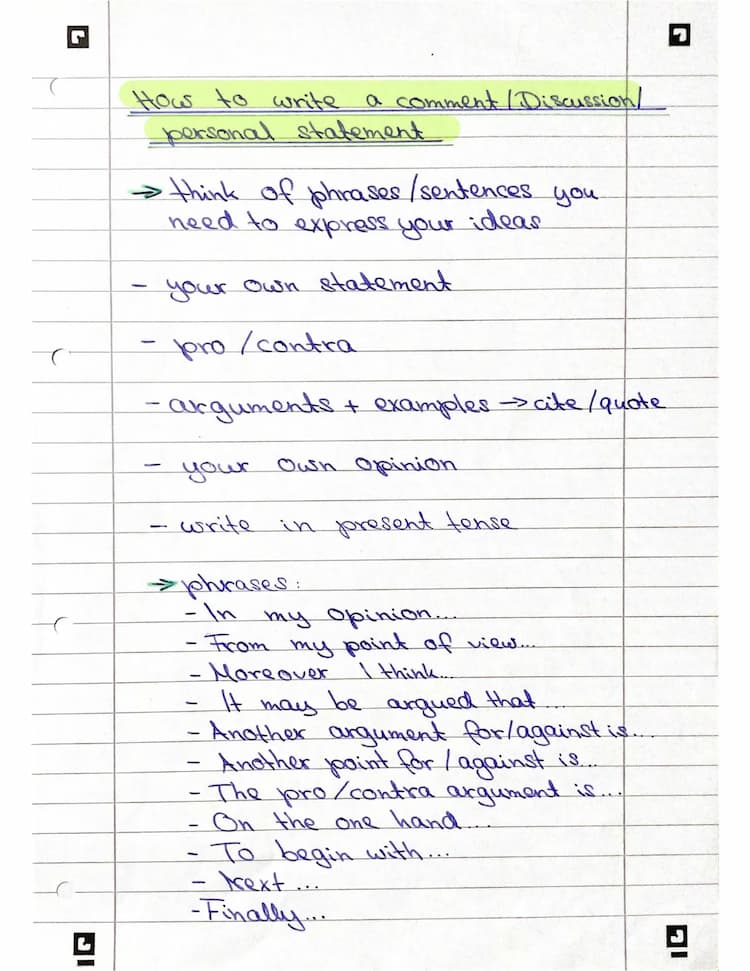 How to write a comment/Discussion/
personal statement
→ think of phrases/sentences you
need to express your ideas
- your own statement
- pro/contra
- arguments + examples → cite/quote
- your own opinion
- write in present tense
→ phrases:
- In my opinion...
- From my point of view...
- Moreover I think...
- It may be argued that...
- Another argument for/against is...
- Another point for/against is...
- The pro/contra argument is...
- On the one hand...
- To begin with...
- Next...
- Finally...